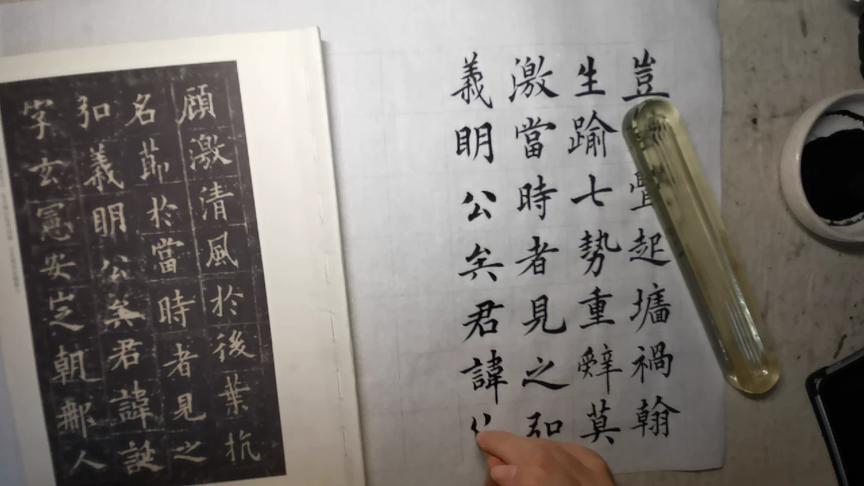 豈起墻禍翰
生踰七勢重辭莫
激當時者見之弘
義明公矣君諱
顧激清風於後葉抗
名節於當時者見之
弘義明公矣君諱誕
字玄憲安定朝那人